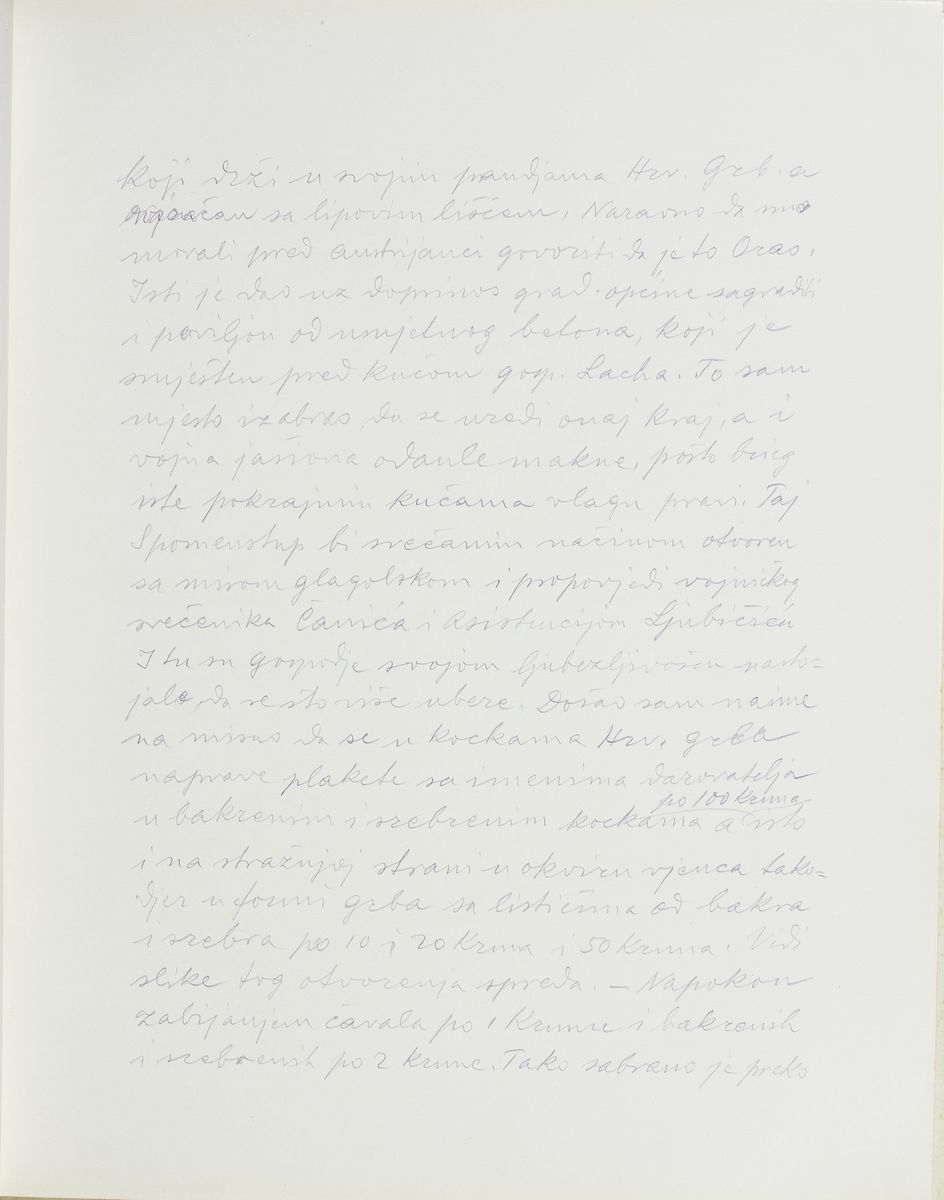 koji drži u svojim pandjama Hrv. Grb. a
ovjenčan sa lipovim lišćem. Naravno da smo
morali pred austrijanci govoriti da je to Orao.
Isti je dao uz doprinos grad. općine sagraditi
i paviljon od umjetnog betona, koji je
smješten pred kućom gosp. Lacha. To sam
mjesto izabrao, da se uredi onaj kraj, a i
vojna odavle makne, pošto
iste pokrajnim kućama vlagu pravi. Taj
Spomenstup bi svečanim načinom otvoren
sa misom glagolskom i propovjedi vojničkog
svečenika Čanića i asistencijom Ljubičića
I tu su gospodje svojom ljubezljivošću nasto=
jale, da se što više ubere. Došao sam naime
na misao da se u kockama Hrv. grba
naprave plakete sa imenima darovatelja
po 100 Kruna
u bakrenim i srebrenim kockama a isto
i na stražnjoj strani u okviru vjenca tako=
djer u formi grba sa listićima od bakra
i srebra po 10 i 20 Kruna i 50 Kruna. Vidi
slike tog otvorenja spreda. – Napokon
zabijanjem čavala po 1 Krunu i bakrenih
i srebrenih po 2 krune. Tako sabrano je preko